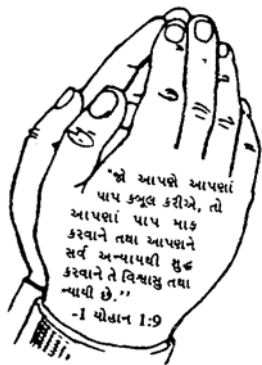 "જો આપણે આપણાં
પાપ કબૂલ કરીએ, તો
આપણાં પાપ માફ
કરવાને તથા આપણને
સર્વ અન્યાયથી શુદ્ધ
કરવાને તે વિશ્વાસુ તથા
ન્યાયી છે."
-1 યોહાન 1:9